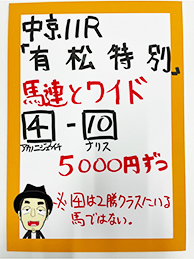 中京11R
「有松特別」
馬連とワイド
4-10
アカノニジュウイチ ナリス
5000円ずつ
※4は2勝クラスにいる
馬ではない。